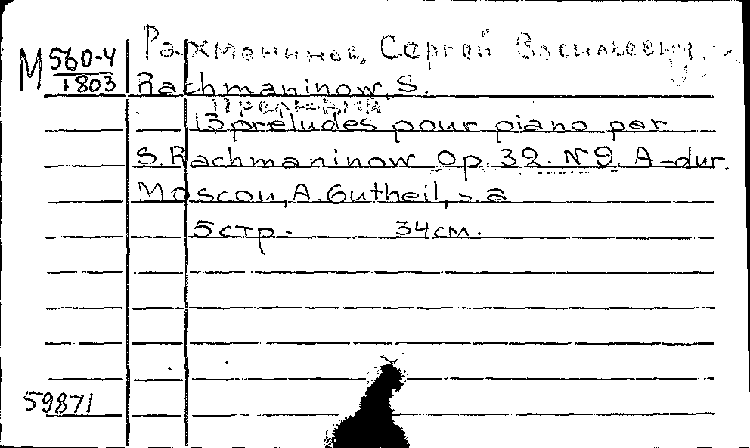 М 560-4
1803
Рахманинов, Сергей Васильевич
Rachmaninow, S.
Прелюдия
13 preludes pour piano par
S. Rachmaninow Op. 32. N 9. A-dur.
Moscou, A. Gutheil, s.a
5 стр. 34 см.
59871